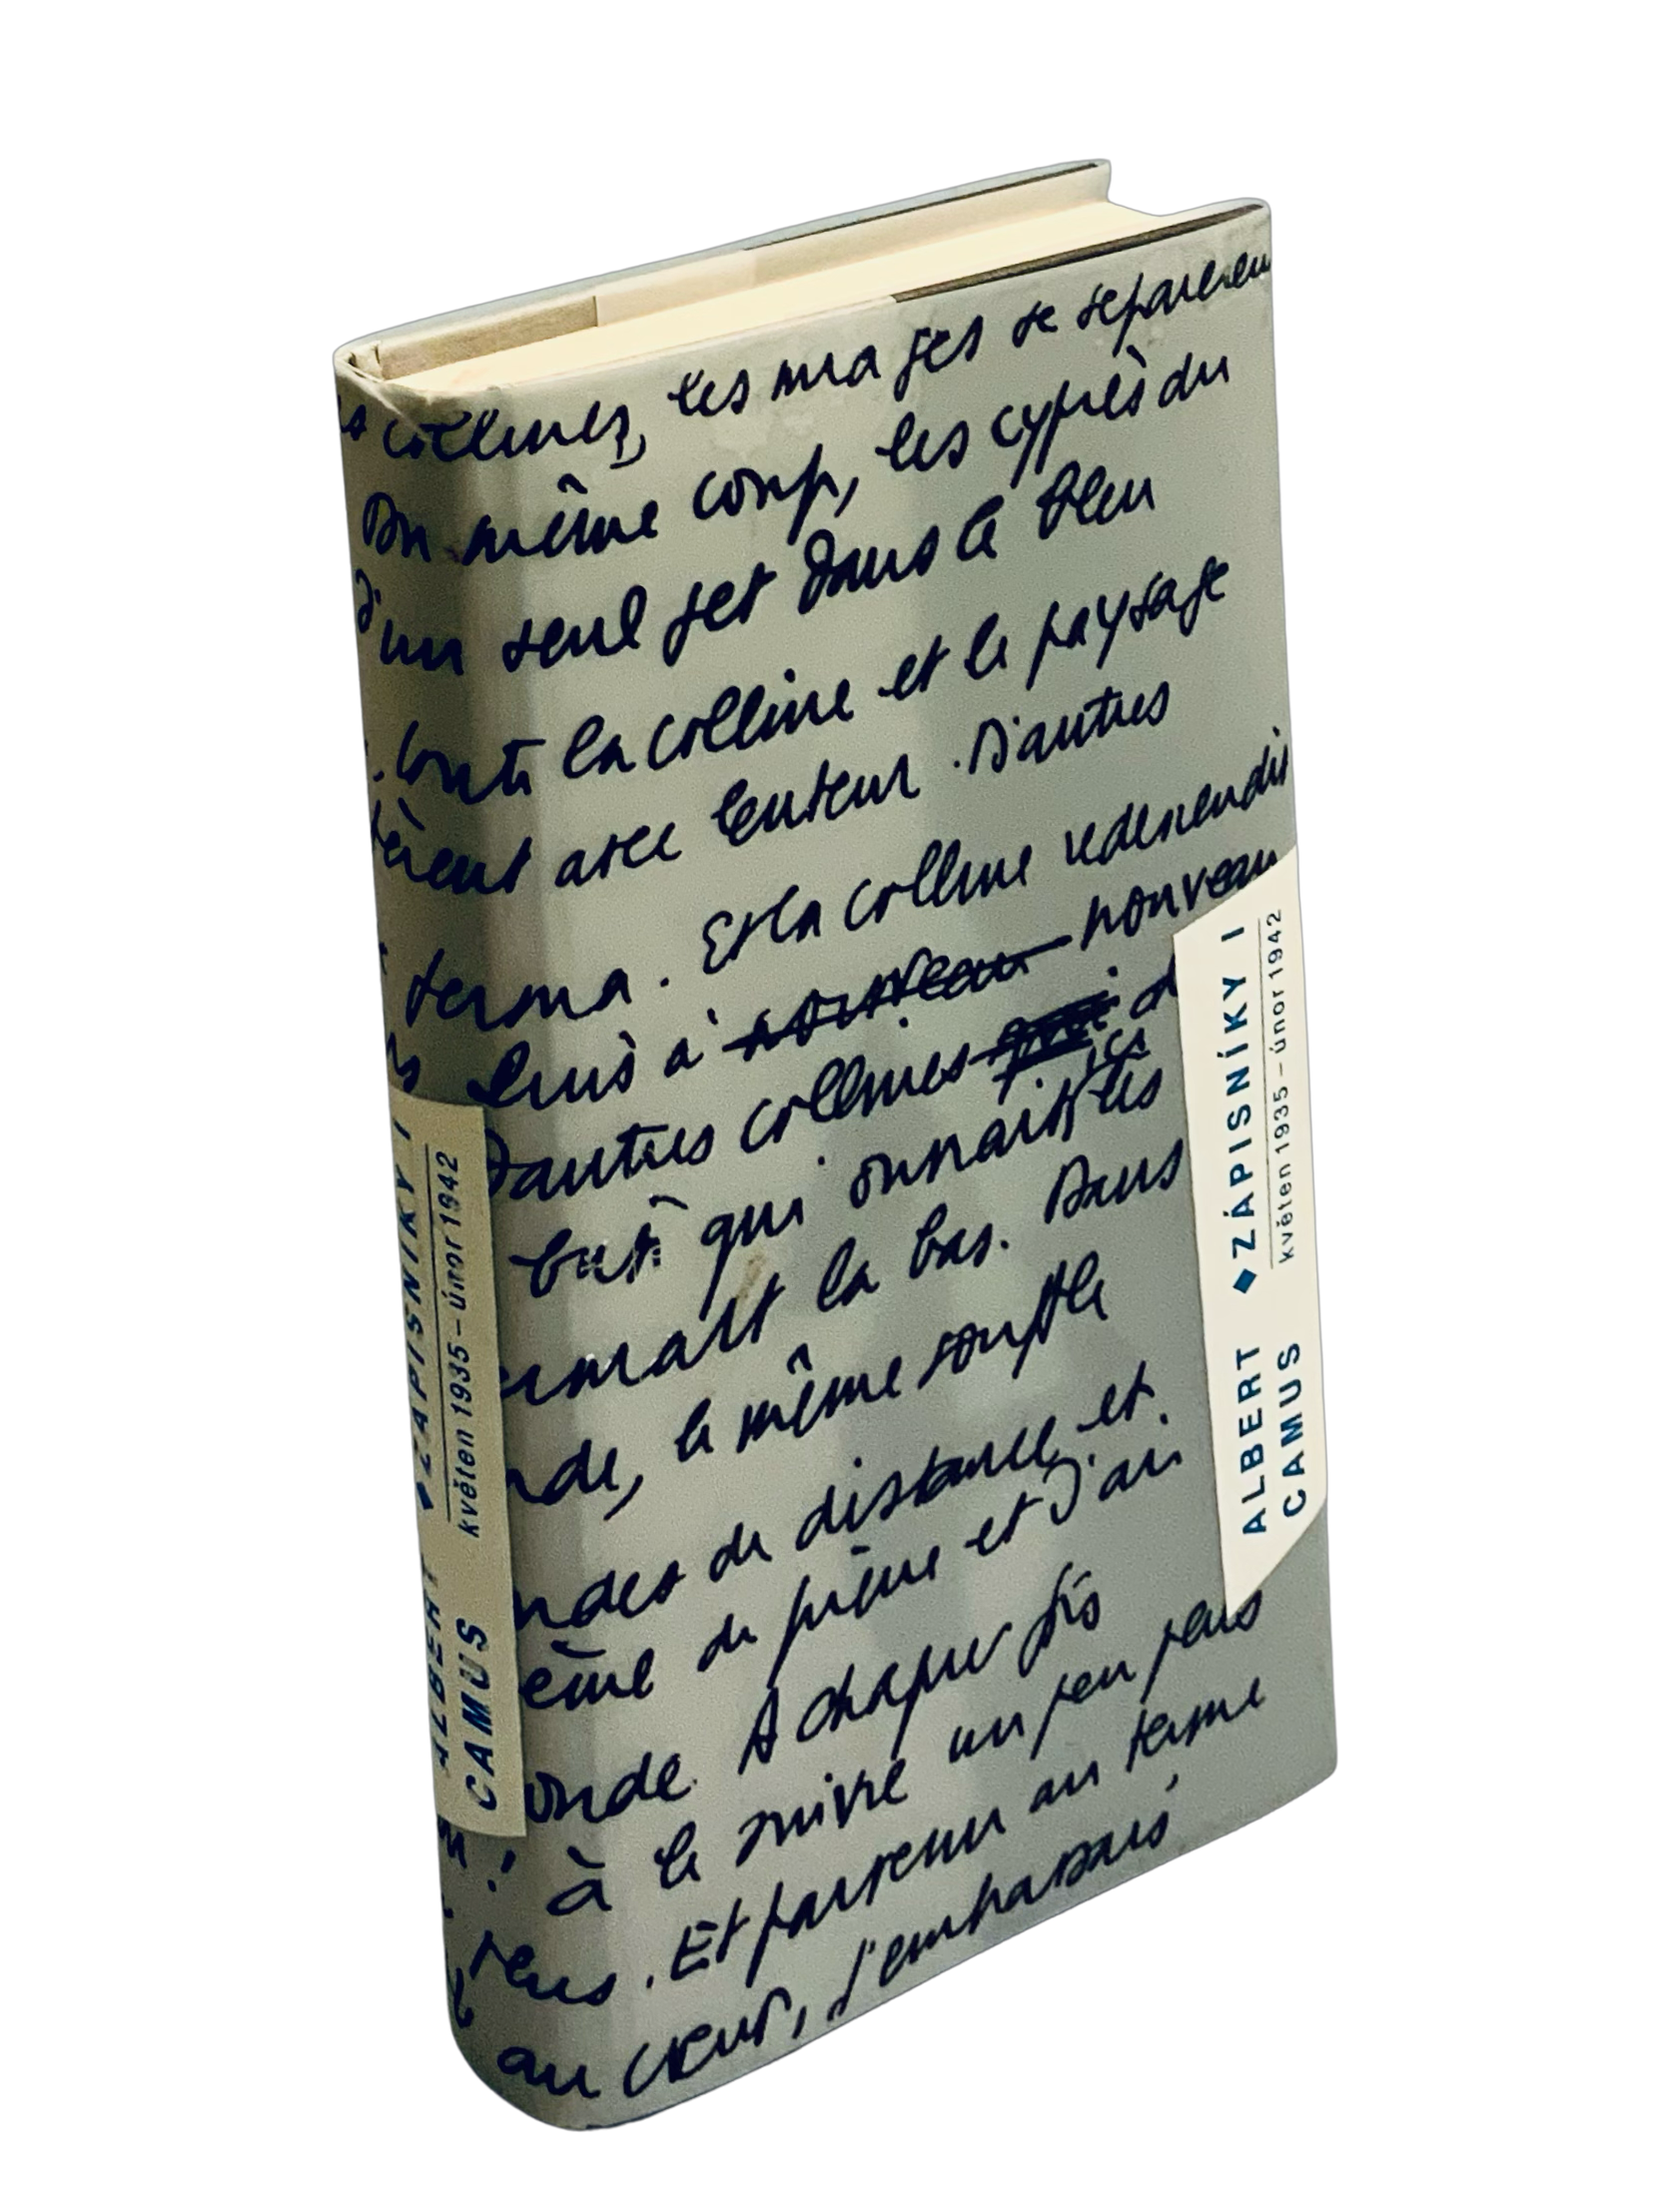 collines, les nuages se séparèren
Du même coup, les cyprès du
d'un seul jet dans le bleu
toute la colline et le paysage
èrent avec lenteur. D'autres
ferma. Et la colline redescendit
puis à nouveau nouveau
D'autres collines
qui
la bas. Dans
nde, le même souffle
ndes de distance et
ème de prière et J'ai
onde. A chaque fois
à le suivre un peu plus
Et parvenu au terme
au cœur, j'embrassais
ALBERT CAMUS ◆ ZÁPISNÍKY I
květen 1935 – únor 1942
ALBERT CAMUS ◆ ZÁPISNÍKY I
květen 1935 – únor 1942